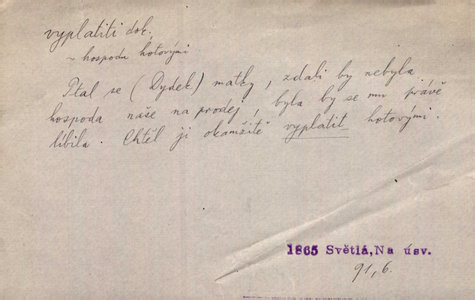 vyplatiti dok.
~ hospodu hotovými
Ptal se (Dydek) matky, zdali by nebyla
hospoda naše na prodej, byla by se mu právě
líbila. Chtěl ji okamžitě vyplatit hotovými.
1865 Světlá,Na úsv.
91,6.